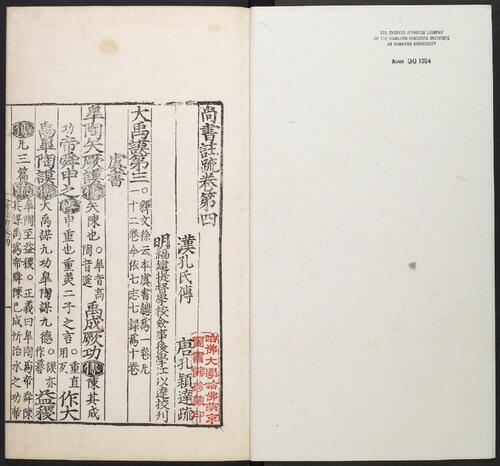 尚書註疏卷第四
漢孔氏傳
唐孔穎達疏
明福建提督學校僉事後學江以達校刊
大禹謨第三
虞書
釋文徐云本虞書總爲一卷凡
十二卷今依七志七録爲十卷
皐陶矢厥謨
矢陳也
皐音高
陶音遥
禹成厥功
陳其成
功
帝舜申之
申重也重美二子之言
重直
用反
作大
禹皐陶謨
大禹謀九功皐陶謀九德
謨亦
作暮
益稷
凡三篇
皐陶至益稷
正義曰皐陶爲帝舜陳
其謀禹爲帝舜陳已成所治水之功帝
哈佛大學哈佛燕京
圖書館珍藏印
THE CHINESE-JAPANESE LIBRARY
OF THE HARVARD-YENCHING INSTITUTE
AT HARVARD UNIVERSITY
MAR 30 1954